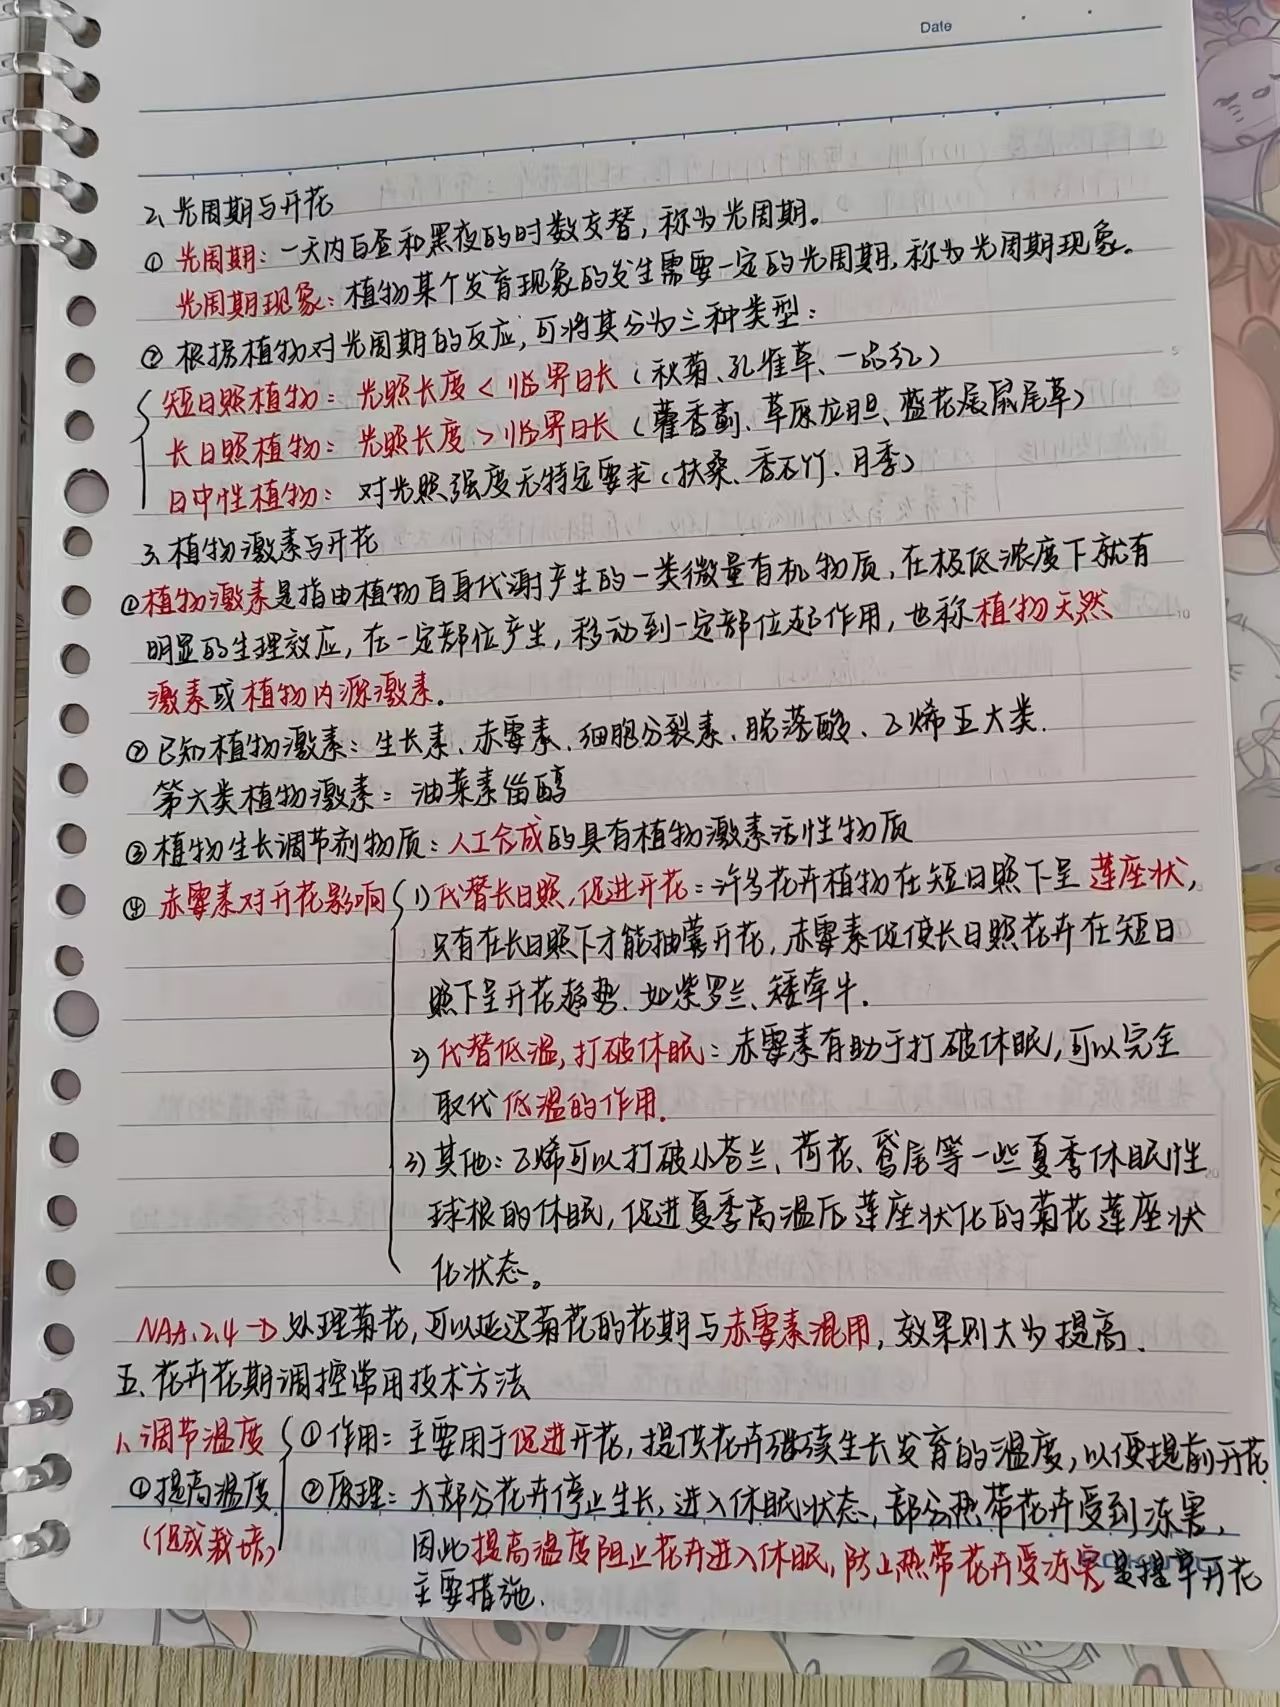 Date
2、光周期与开花
① 光周期：一天内白昼和黑夜的时数交替，称为光周期。
光周期现象：植物某个发育现象的发生需要一定的光周期，称为光周期现象。
② 根据植物对光周期的反应，可将其分为三种类型：
短日照植物：光照长度＜临界日长（秋菊、孔雀草、一品红）
长日照植物：光照长度＞临界日长（藿香蓟、草原龙胆、蓝花展鼠尾草）
日中性植物：对光照强度无特定要求（扶桑、香石竹、月季）
3、植物激素与开花
①植物激素是指由植物自身代谢产生的一类微量有机物质，在极低浓度下就有
明显的生理效应，在一定部位产生，移动到一定部位起作用，也称植物天然
激素或植物内源激素。
② 已知植物激素：生长素、赤霉素、细胞分裂素、脱落酸、乙烯五大类.
第六类植物激素：油菜素甾醇
③ 植物生长调节剂物质：人工合成的具有植物激素活性物质
④ 赤霉素对开花影响 1）代替长日照，促进开花：许多花卉植物在短日照下呈莲座状，
只有在长日照下才能抽薹开花，赤霉素促使长日照花卉在短日
照下呈开花趋势、如紫罗兰、矮牵牛.
2）代替低温，打破休眠：赤霉素有助于打破休眠，可以完全
取代低温的作用.
3）其他：乙烯可以打破小苍兰、荷花、鸢尾等一些夏季休眠性
球根的休眠，促进夏季高温后莲座状化的菊花莲座状
化状态。
NAA、2,4-D处理菊花，可以延迟菊花的花期与赤霉素混用，效果则大为提高.
五、花卉花期调控常用技术方法
1、调节温度 ①作用：主要用于促进开花，提供花卉继续生长发育的温度，以便提前开花.
①提高温度 ②原理：大部分花卉停止生长，进入休眠状态，部分热带花卉受到冻害，
（促成栽培） 因此提高温度阻止花卉进入休眠，防止热带花卉受冻害是提早开花
主要措施.